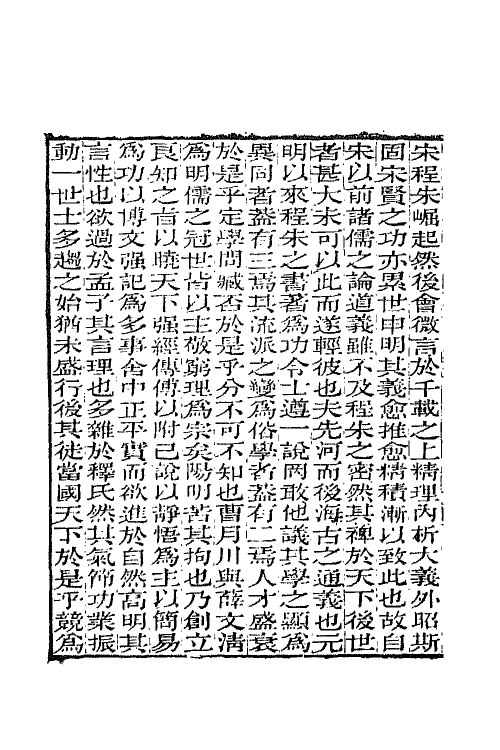 宋程朱崛起然後會微言於千載之上精理內析大義外昭斯
固宋賢之功亦累世申明其義愈推愈精積漸以致此也故自
宋以前諸儒之論道義雖不及程朱之密然其裨於天下後世
者甚大未可以此而遂輕彼也夫先河而後海古之通義也元
明以來程朱之書著爲功令士遵一說罔敢他議其學之顯爲
異同者蓋有三焉其流派之變爲俗學者蓋有二焉人才盛衰
於是乎定學問臧否於是乎分不可不知也曹月川與薛文清
爲明儒之冠世皆以主敬窮理爲宗矣陽明苦其拘也乃創立
良知之旨以曉天下强經傳傅以附己說以靜悟爲主以簡易
爲功以博文强記爲多事舍中正平實而欲進於自然高明其
言性也欲過於孟子其言理也多雜於釋氏然其氣節功業振
動一世士多趨之始猶未盛行後其徒當國天下於是乎競爲